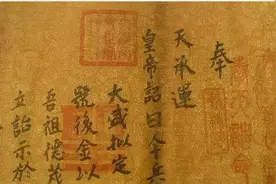 奉
天承運
皇帝詔曰今兵
大盛拟定
號後金以
吾祖德茂
立詔示於